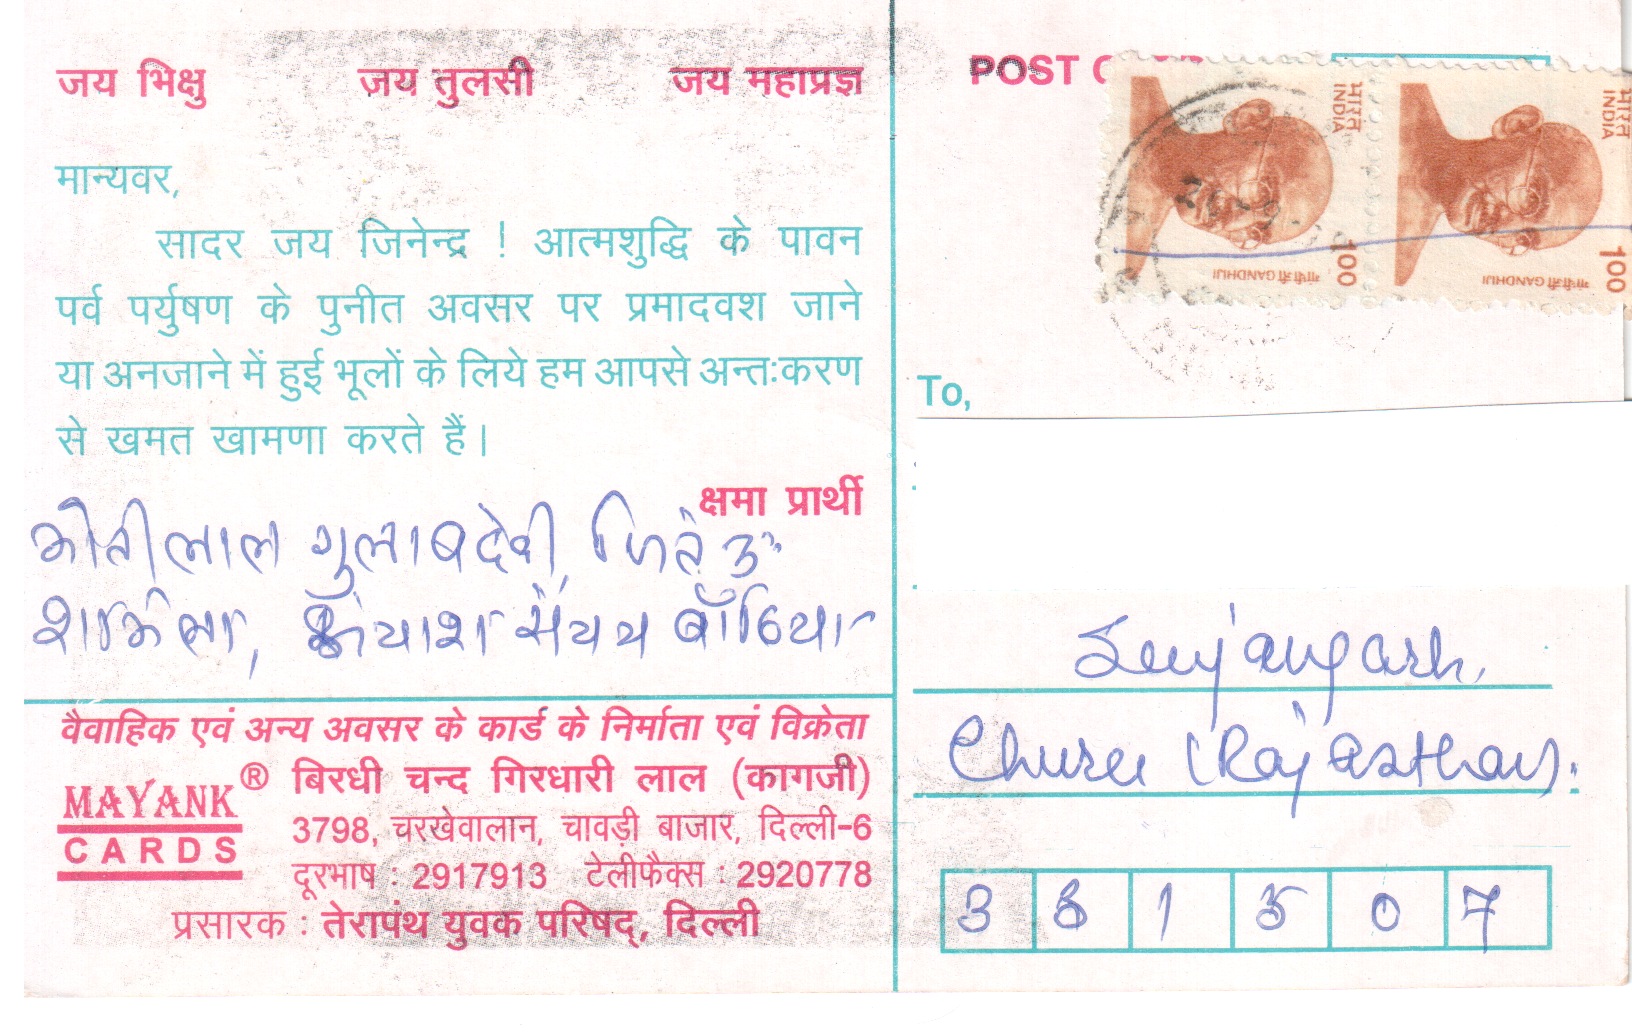 जय भिक्षु जय तुलसी जय महाप्रज्ञ
मान्यवर,
सादर जय जिनेन्द्र ! आत्मशुद्धि के पावन
पर्व पर्युषण के पुनीत अवसर पर प्रमादवश जाने
या अनजाने में हुई भूलों के लिये हम आपसे अन्तःकरण
से खमत खामणा करते हैं।
क्षमा प्रार्थी
मोतीलाल गुलाबदेवी,
बाँठिया
वैवाहिक एवं अन्य अवसर के कार्ड के निर्माता एवं विक्रेता
MAYANK ®
CARDS
बिरधी चन्द गिरधारी लाल (कागजी)
3798, चरखेवालान, चावड़ी बाजार, दिल्ली-6
दूरभाष : 2917913 टेलीफैक्स : 2920778
प्रसारक : तेरापंथ युवक परिषद्, दिल्ली
POST
भारत INDIA
100
गांधीजी GANDHIJI
भारत INDIA
100
गांधीजी GANDHIJI
To,
Sujangarh,
Churu (Rajasthan).
331507